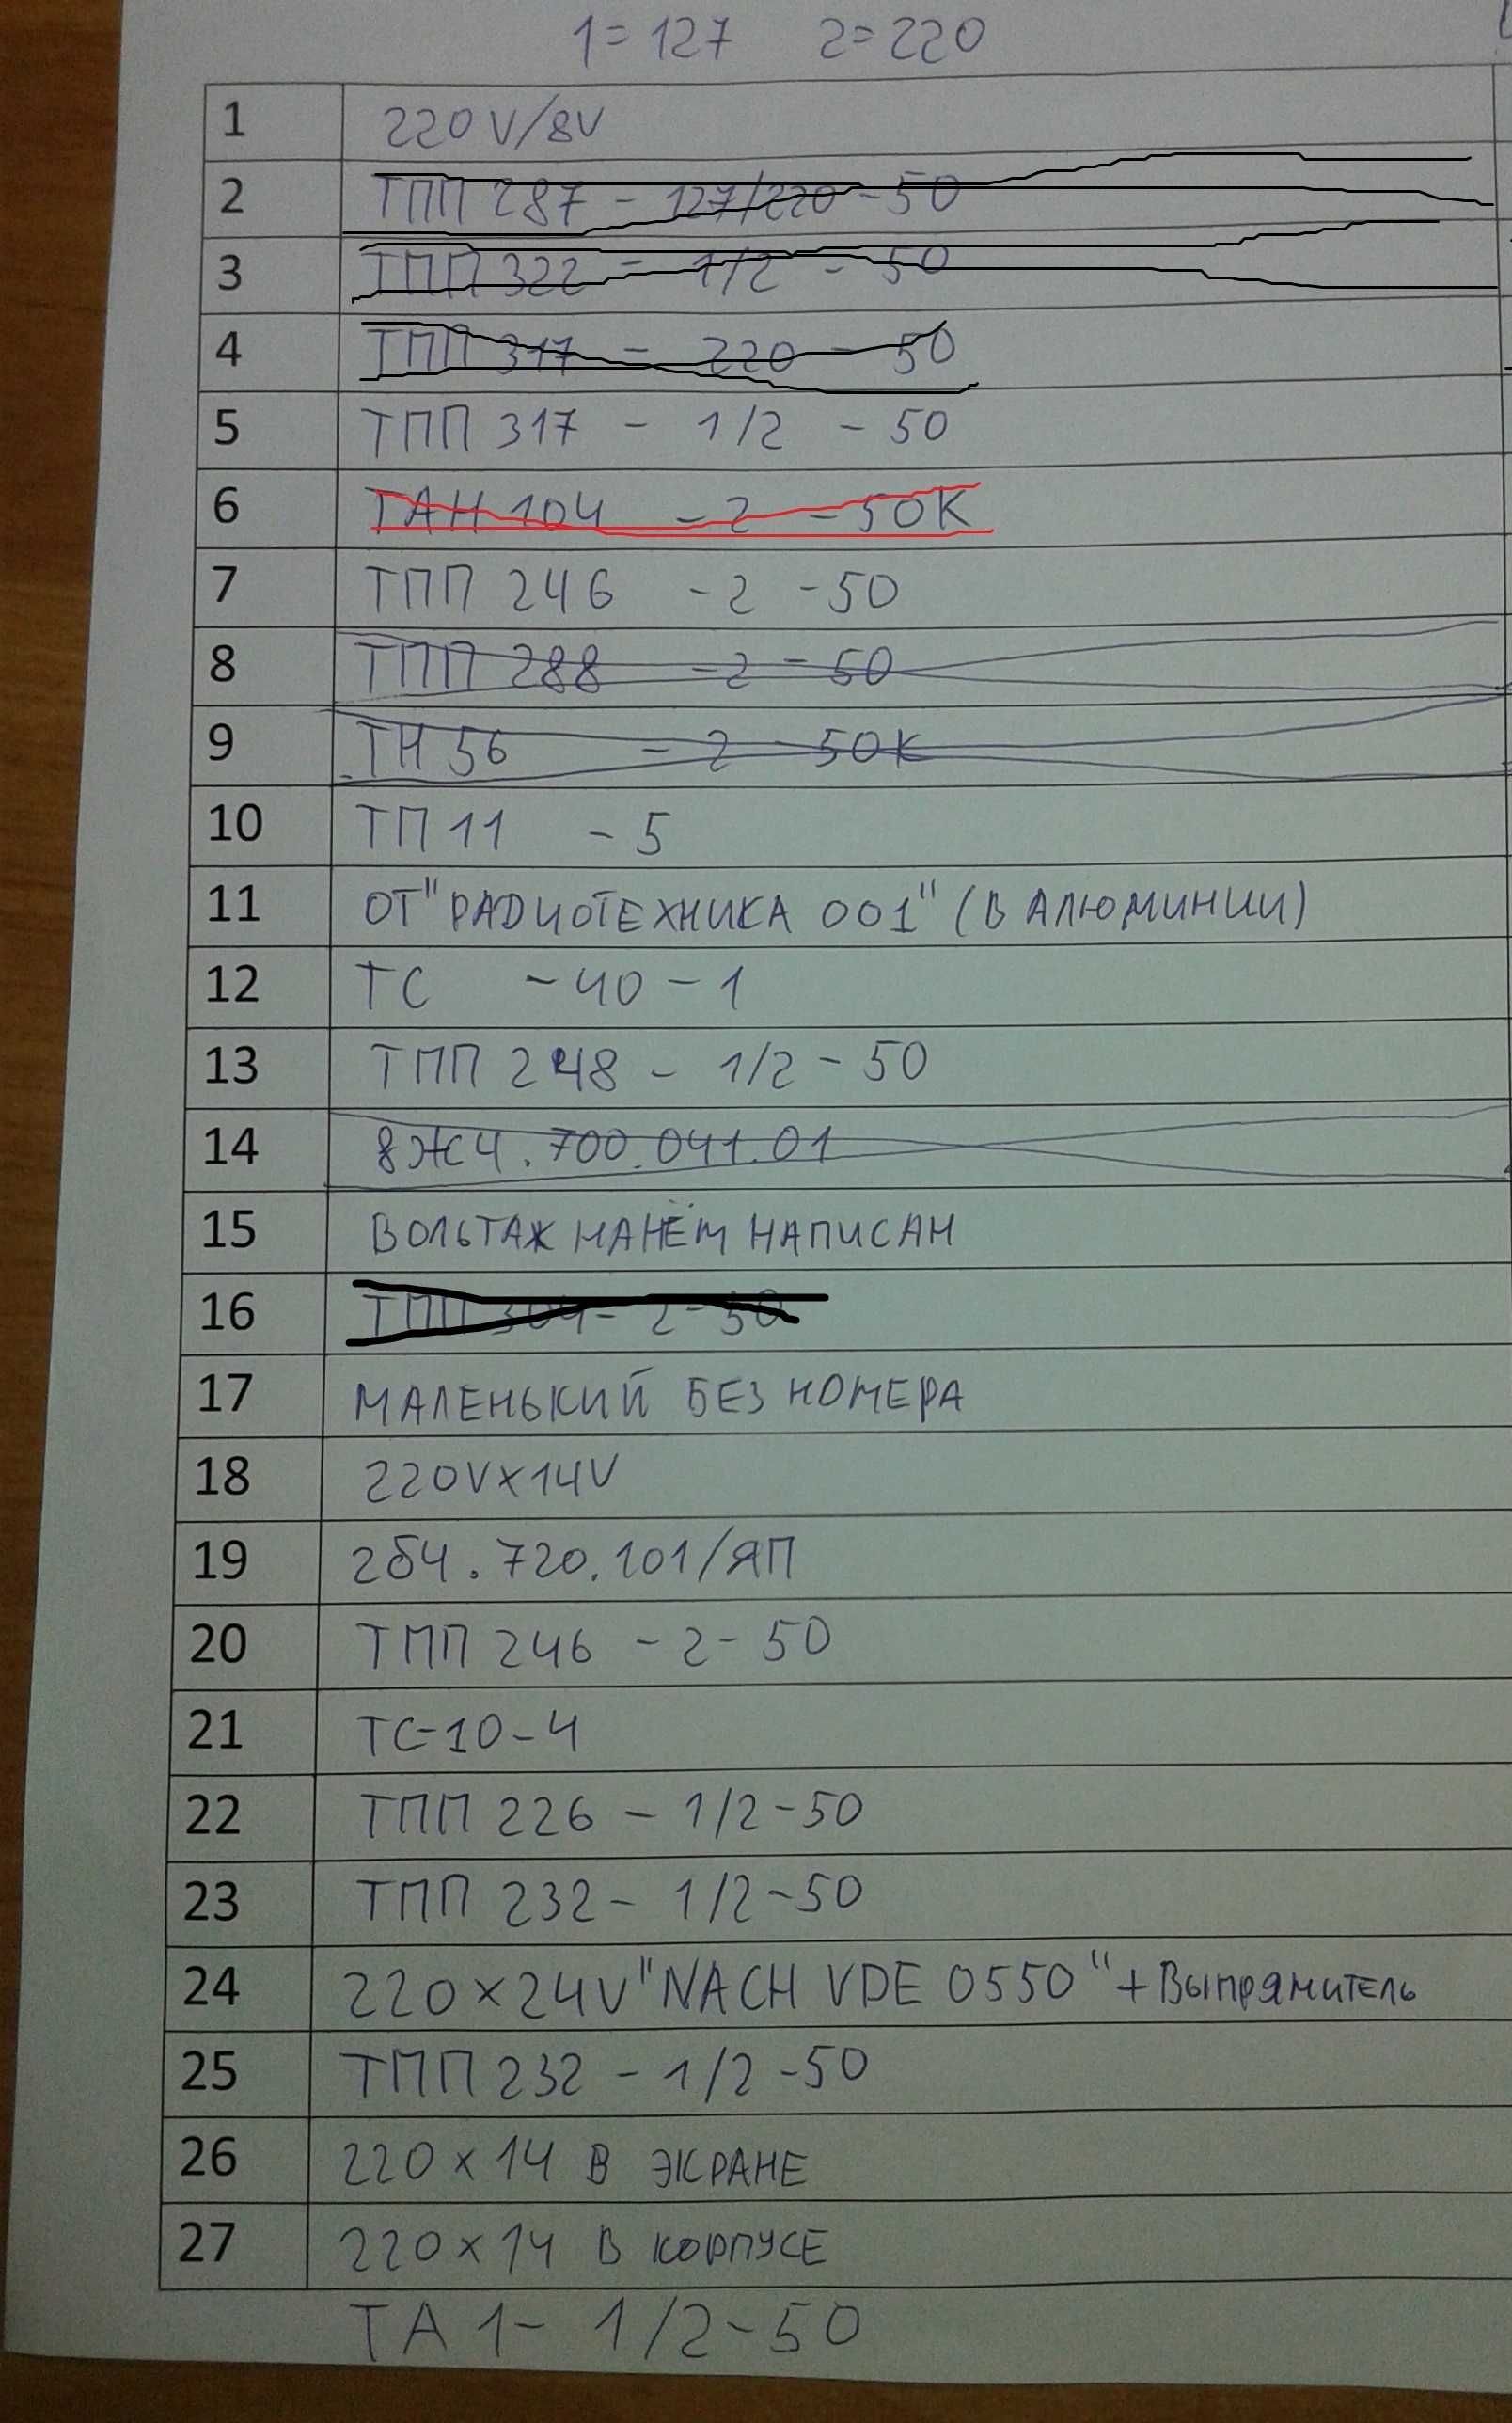 1=127 2=220
1 220V/8V
2 ТПП 287 - 127/220 - 50
3 ТПП 322 - 1/2 - 50
4 ТПП 317 - 220 - 50
5 ТПП 317 - 1/2 - 50
6 ТАН 104 - 2 - 50К
7 ТПП 246 - 2 - 50
8 ТПП 288 - 2 - 50
9 ТН 56 - 2 - 50К
10 ТП 11 - 5
11 ОТ "РАДИОТЕХНИКА 001" (В АЛЮМИНИИ)
12 ТС - 40 - 1
13 ТПП 248 - 1/2 - 50
14 8Ж4.700.041.01
15 ВОЛЬТАЖ НАНЁМ НАПИСАН
16 ТПП 304 - 2 - 50
17 МАЛЕНЬКИЙ БЕЗ НОМЕРА
18 220V×14V
19 2б4.720.101/ЯП
20 ТПП 246 - 2 - 50
21 ТС-10-4
22 ТПП 226 - 1/2 - 50
23 ТПП 232 - 1/2 - 50
24 220×24V "NACH VDE 0550" + Выпрямитель
25 ТПП 232 - 1/2 - 50
26 220×14 В ЭКРАНЕ
27 220×14 В КОРПУСЕ
ТА 1 - 1/2 - 50